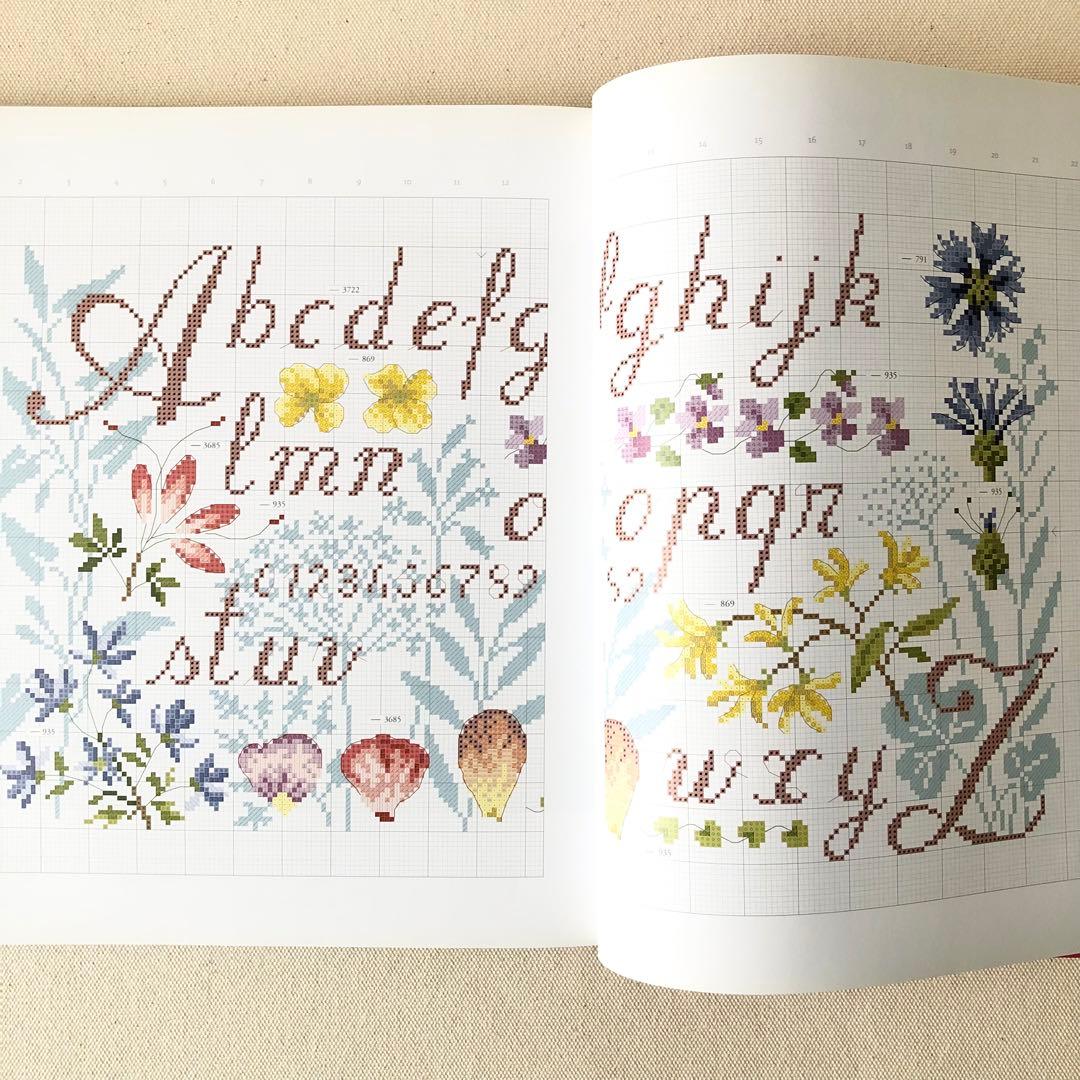 2 3 4 5 6 7 8 9 10 11 12
3722
Abcdefg
869
lmn
3685
935
o
123456789
stuv
935
3685
13 14 15 16 17 18 19 20 21 22
791
fghijk
935
opqr
935
869
wxyZ
935